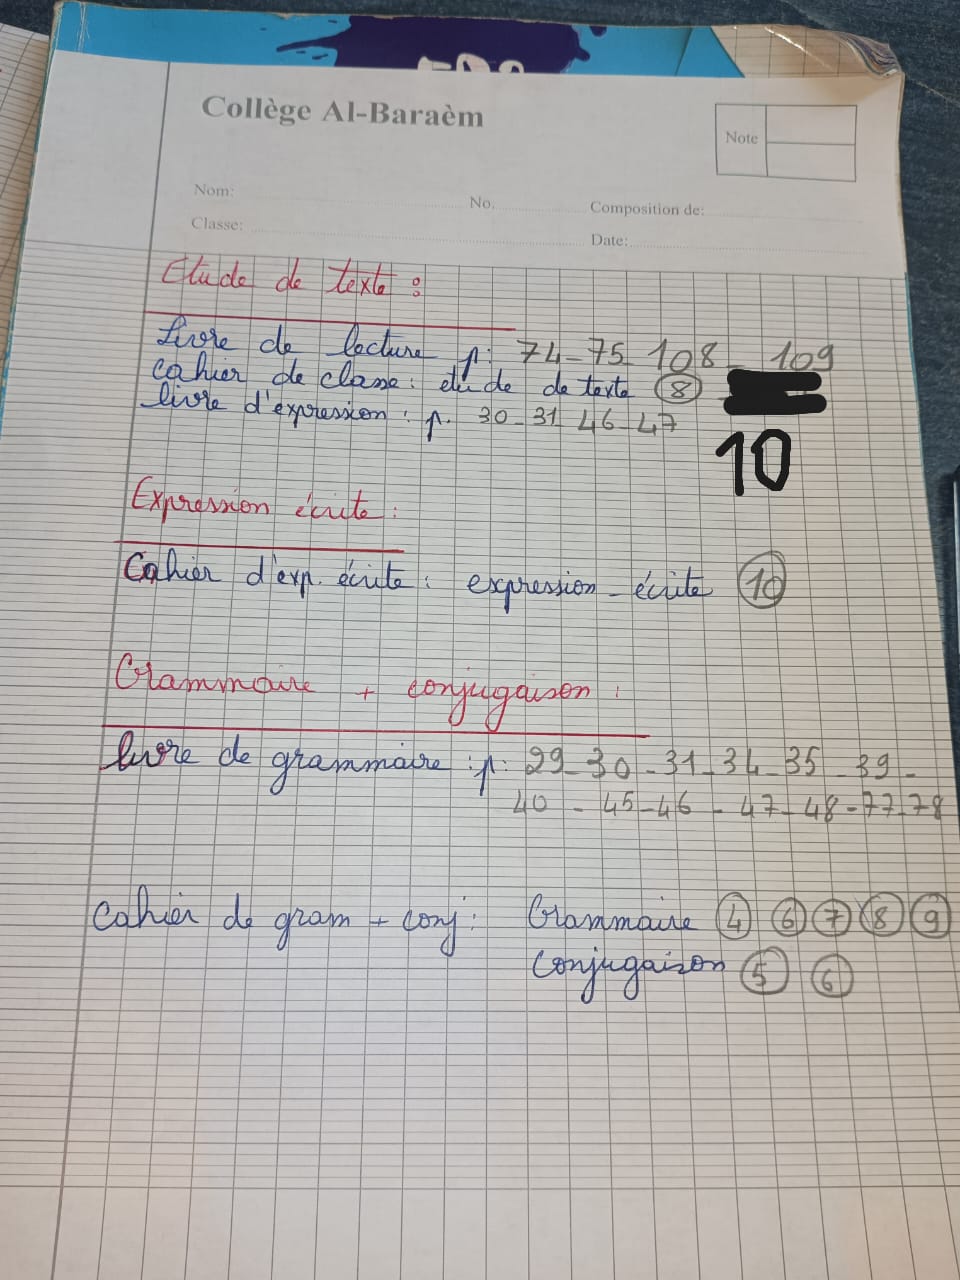 Collège Al-Baraèm
Note
Nom:
No.
Composition de:
Classe:
Date:
Etude de texte :
Livre de lecture p: 74-75 108 - 109
cahier de classe : etude de texte 8
livre d'expression : p. 30-31 46-47
10
Expression écrite :
Cahier d'exp. écrite : expression - écrite 10
Grammaire + conjugaison :
livre de grammaire : p: 29-30-31-34-35-39-
40-45-46-47-48-77-78
Cahier de gram + conj : Grammaire 4 6 7 8 9
Conjugaison 5 6